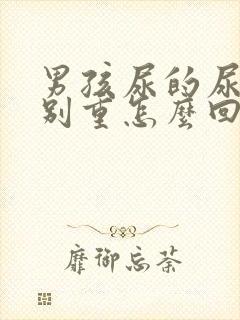 男孩尿的尿
别重怎麽回
靡御忘荼